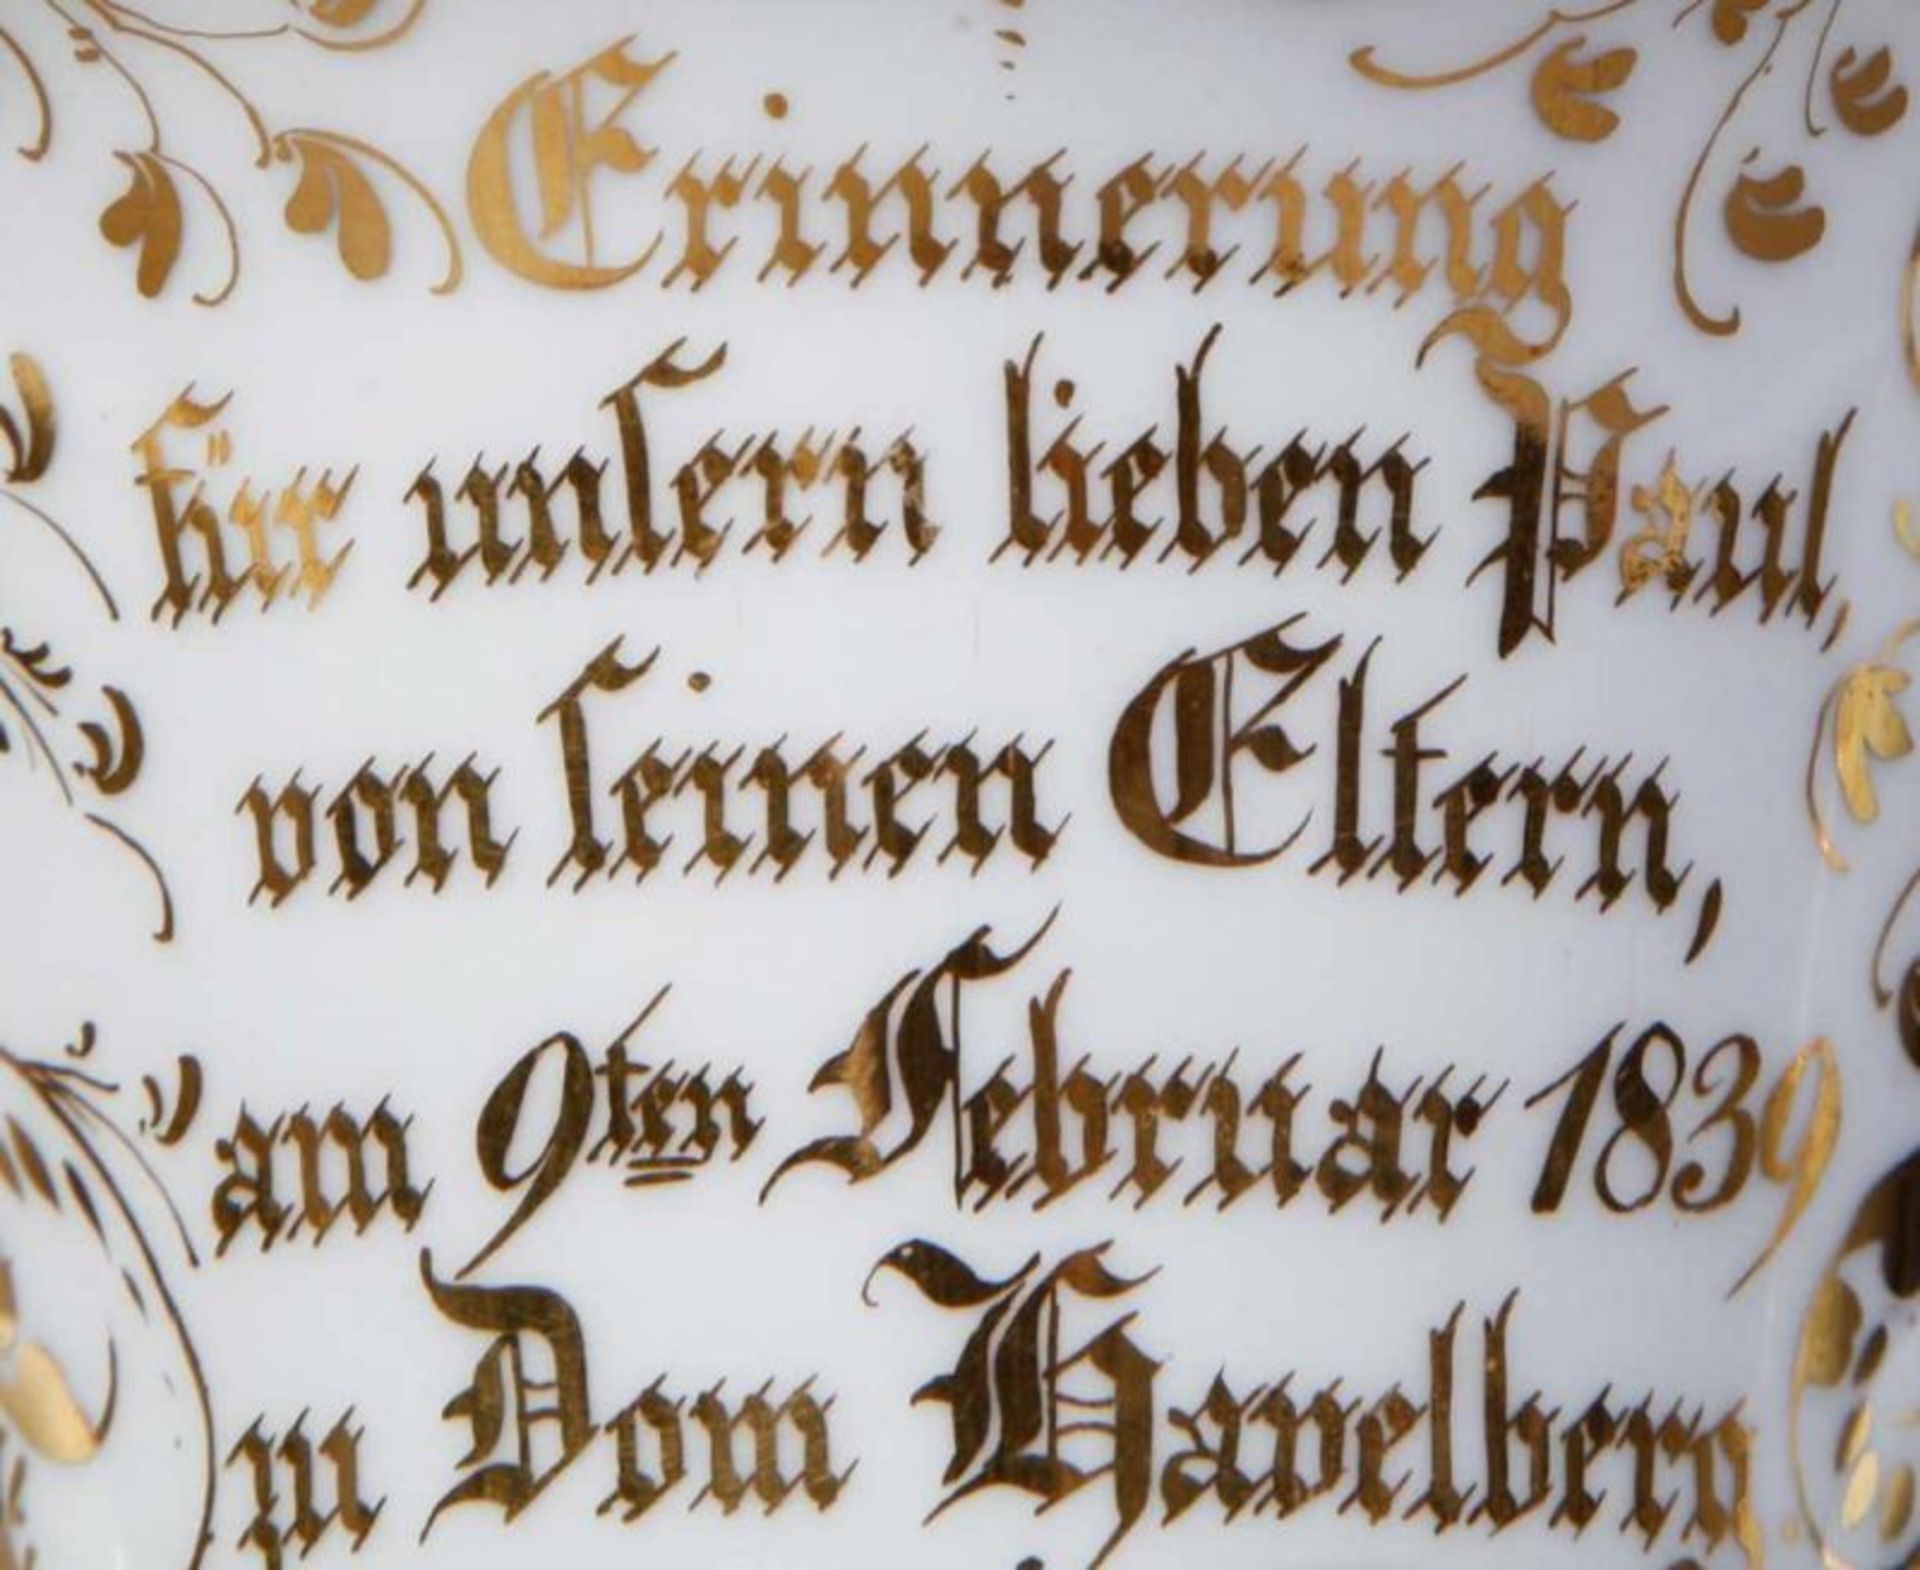 Erinnerung
für unsern lieben Paul,
von seinen Eltern,
am 9ten Februar 1839
zu Dom Havelberg.